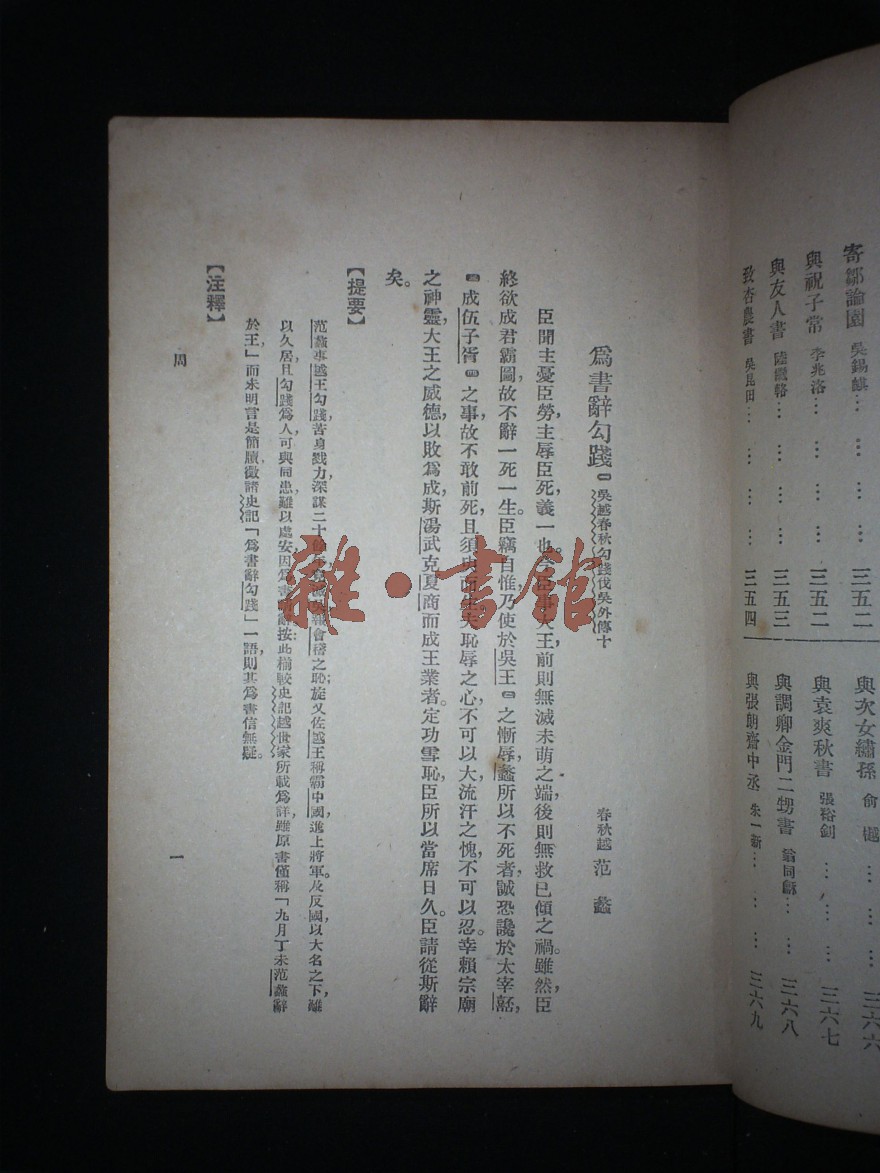 寄鄒論園 吳錫麒… … … … 三五二
與祝子常 李兆洛… … … … 三五二
與友人書 陸繼輅… … … … 三五三
致杏農書 吳昆田… … … … 三五四
與次女繡孫 俞樾… … … 三六六
與袁爽秋書 張裕釗… … … 三六七
與調卿金門二甥書 翁同龢… … 三六八
與張朗齋中丞 朱一新… … … 三六九
爲書辭勾踐㊀ 吳越春秋勾踐伐吳外傳十
春秋越 范蠡
臣聞主憂臣勞,主辱臣死,義一也。今臣事大王,前則無滅未萌之端,後則無救已傾之禍。雖然,臣
終欲成君霸圖,故不辭一死一生。臣竊自惟,乃使於吳王㊁之慚辱。蠡所以不死者,誠恐讒於太宰嚭,
㊂成伍子胥㊃之事,故不敢前死,且須臾而生。夫恥辱之心,不可以大,流汗之愧,不可以忍。幸賴宗廟
之神靈,大王之威德,以敗爲成,斯湯武克夏商而成王業者。定功雪恥,臣所以當席日久。臣請從斯辭
矣。
【提要】
范蠡事越王勾踐,苦身戮力,深謀二十報會稽之恥;旋又佐越王稱霸中國,進上將軍。及反國,以大名之下,難
以久居,且勾踐爲人,可與同患,難以處安,因爲書辭。按:此較史記越世家所載爲詳,雖原書僅稱「九月丁未范蠡辭
於王」而未明言是簡牘,徵諸史記「爲書辭勾踐」一語,則其爲書信無疑。
【注釋】
周
一
雜·書館